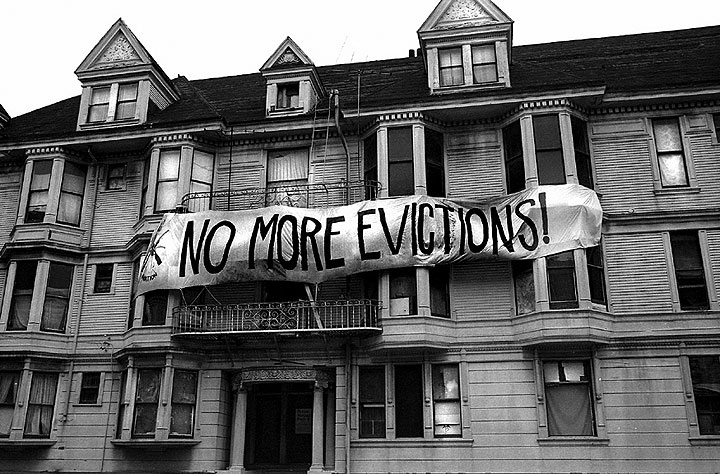 NO MORE EVICTIONS!